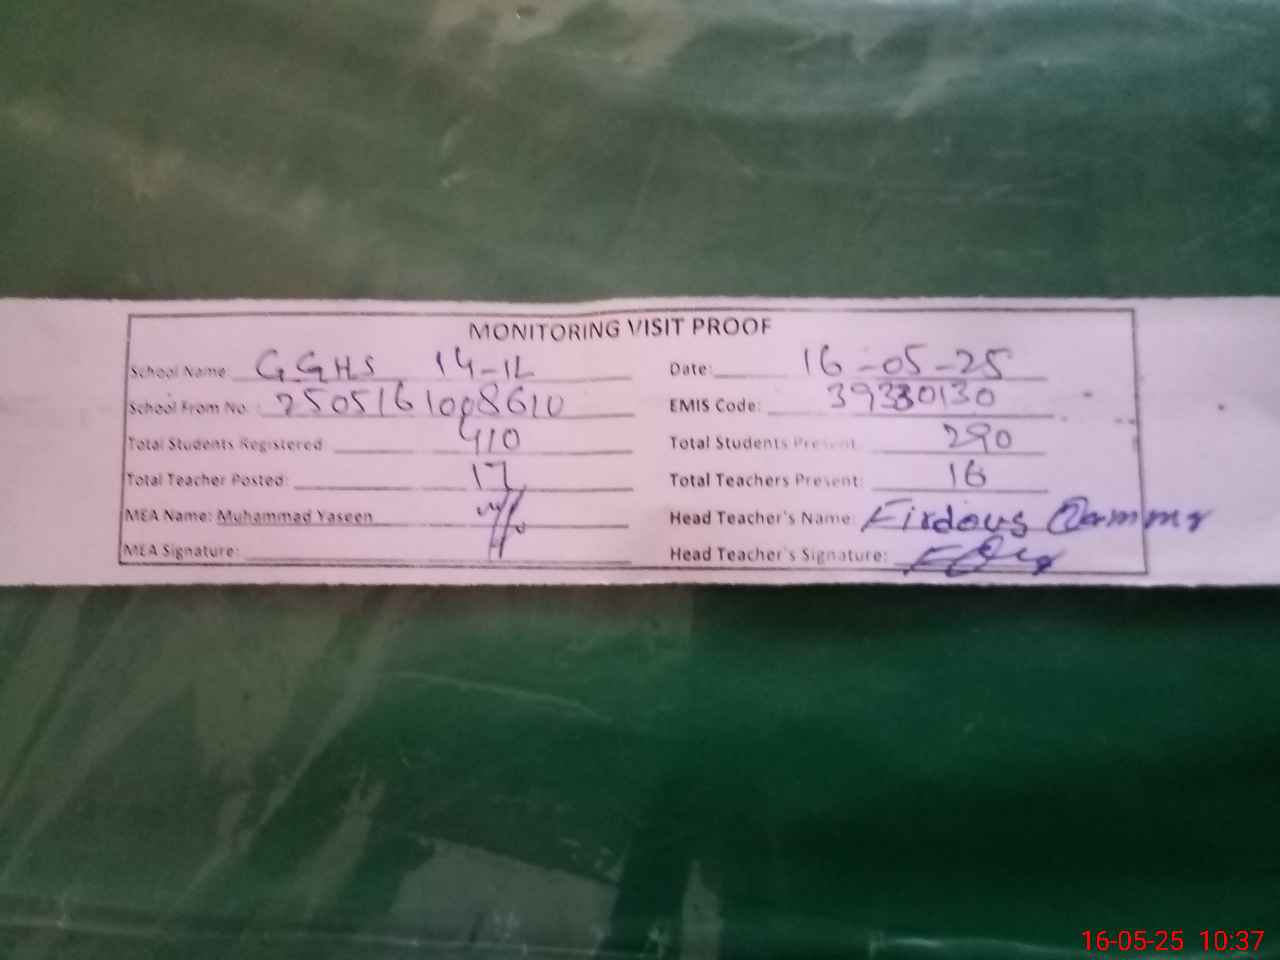 MONITORING VISIT PROOF
School Name: GGHS 14-1L Date: 16-05-25
School From No. : 2505161008610 EMIS Code: 39330130
Total Students Registered 410 Total Students Present 290
Total Teacher Posted: 17 Total Teachers Present: 16
MEA Name: Muhammad Yaseen Head Teacher's Name: Firdous
MEA Signature: Head Teacher's Signature:
16-05-25 10:37